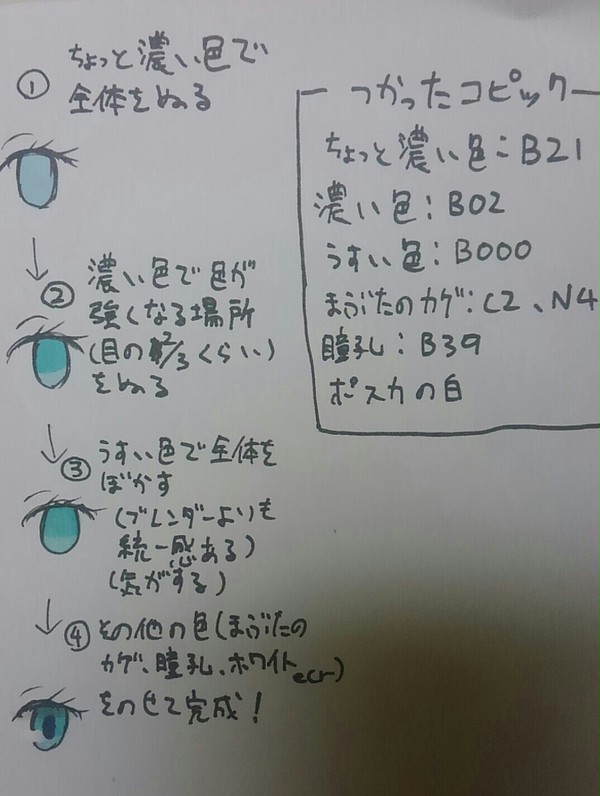 ① ちょっと濃い色で
全体をぬる
② 濃い色で色が
強くなる場所
(目の2/3くらい)
をぬる
③ うすい色で全体を
ぼかす
(ブレンダーよりも
統一感ある)
(気がする)
④ その他の色(まぶたの
カゲ、瞳孔、ホワイトecr)
をのせて完成!
つかったコピック
ちょっと濃い色:B21
濃い色:B02
うすい色:B000
まぶたのカゲ:C2、N4
瞳孔:B39
ポスカの白